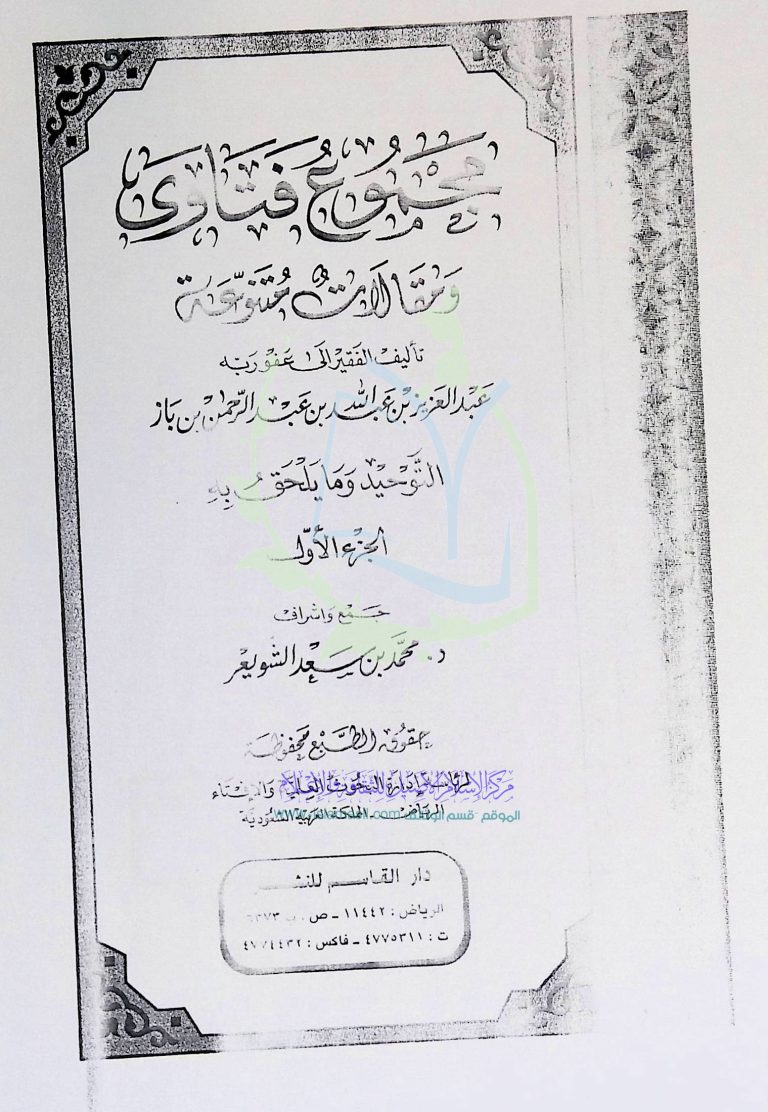 مجموع فتاوى
ومقالات متنوعة
تأليف الفقير إلى عفو ربه
عبد العزيز بن عبد الله بن عبد الرحمن بن باز
التوحيد وما يلحق به
الجزء الأول
جمع وإشراف
د. محمد بن سعد الشويعر
حقوق الطبع محفوظة
لرئاسة إدارة البحوث العلمية والإفتاء
الرياض - المملكة العربية السعودية
الموقع - قسم
دار القاسم للنشر
الرياض : ١١٤٤٢ - ص . ب ٦٣٧٣
ت : ٤٧٧٥٣١١ - فاكس : ٤٧٧٤٤٣٢